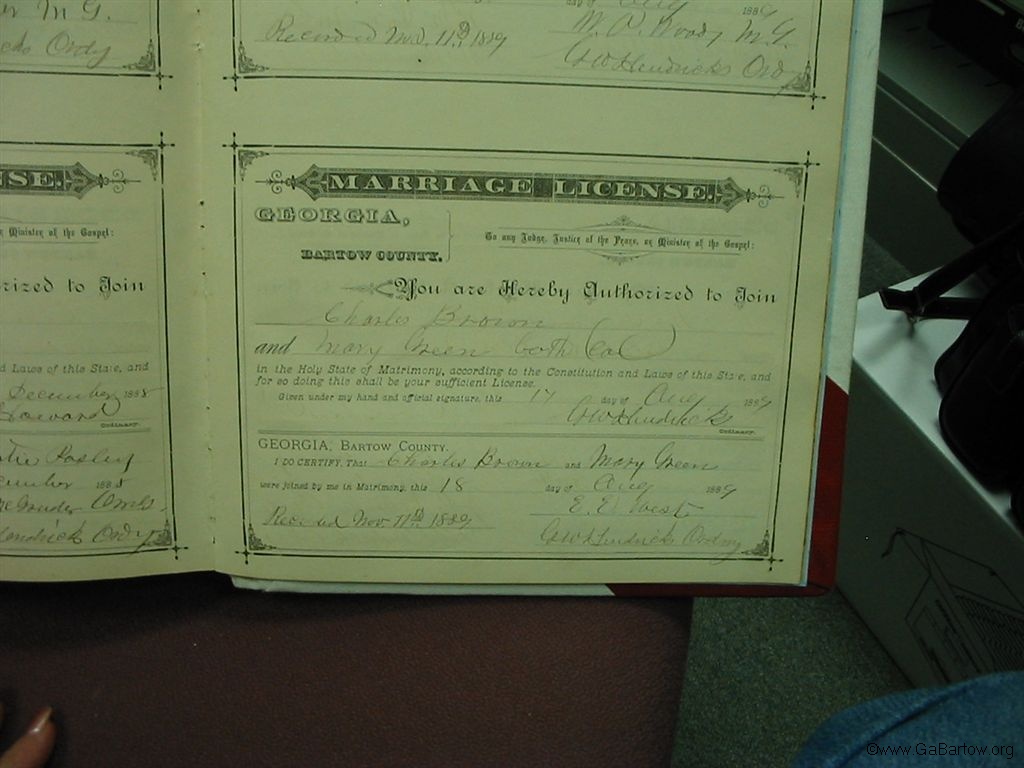 M. G.
Ordy
1889
W. A. Woody M. G.
Recorded Nov. 11th 1889
GW Hendricks Ord
NSE.
Minister of the Gospel:
rized to Join
d Laws of this State, and
December 188 8
Howard
Ordinary.
Pasley
cember 188 8
Ordy
MARRIAGE LICENSE.
GEORGIA,
BARTOW COUNTY.
To any Judge, Justice of the Peace, or Minister of the Gospel:
You are Hereby Authorized to Join
Charles Brown
and Mary Green both (Col)
in the Holy State of Matrimony, according to the Constitution and Laws of this State, and
for so doing this shall be your sufficient License.
Given under my hand and official signature, this 17 day of Aug 1889
GW Hendricks
Ordinary.
GEORGIA, BARTOW COUNTY.
I DO CERTIFY, That Charles Brown and Mary Green
were joined by me in Matrimony, this 18 day of Aug 1889
E. E. West
Recorded Nov 11th 1889
GW Hendricks Ordny
©www.GaBartow.org